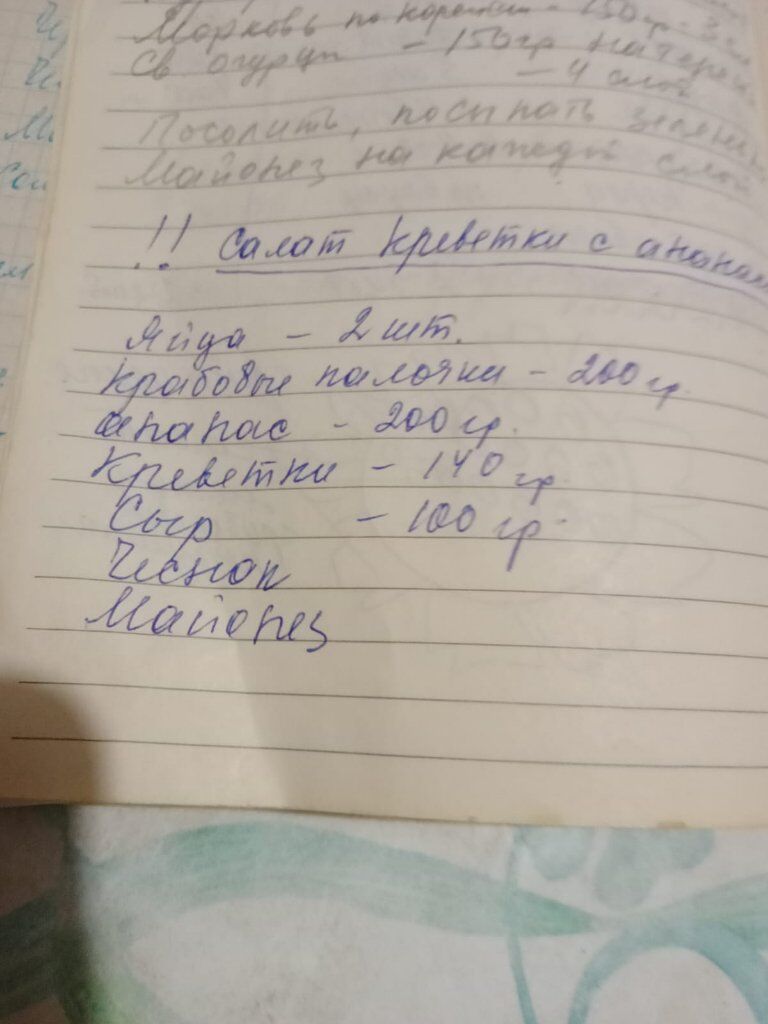 Морковь по корейски - 150 гр - 3 сл
Св огурцы - 150 гр натереть
- 4 слой
Посолить, посыпать зеленью
Майонез на каждый слой
!! Салат креветки с ананас
Яйца - 2 шт.
Крабовые палочки - 200 гр.
ананас - 200 гр.
Креветки - 140 гр.
Сыр - 100 гр.
Чеснок
Майонез